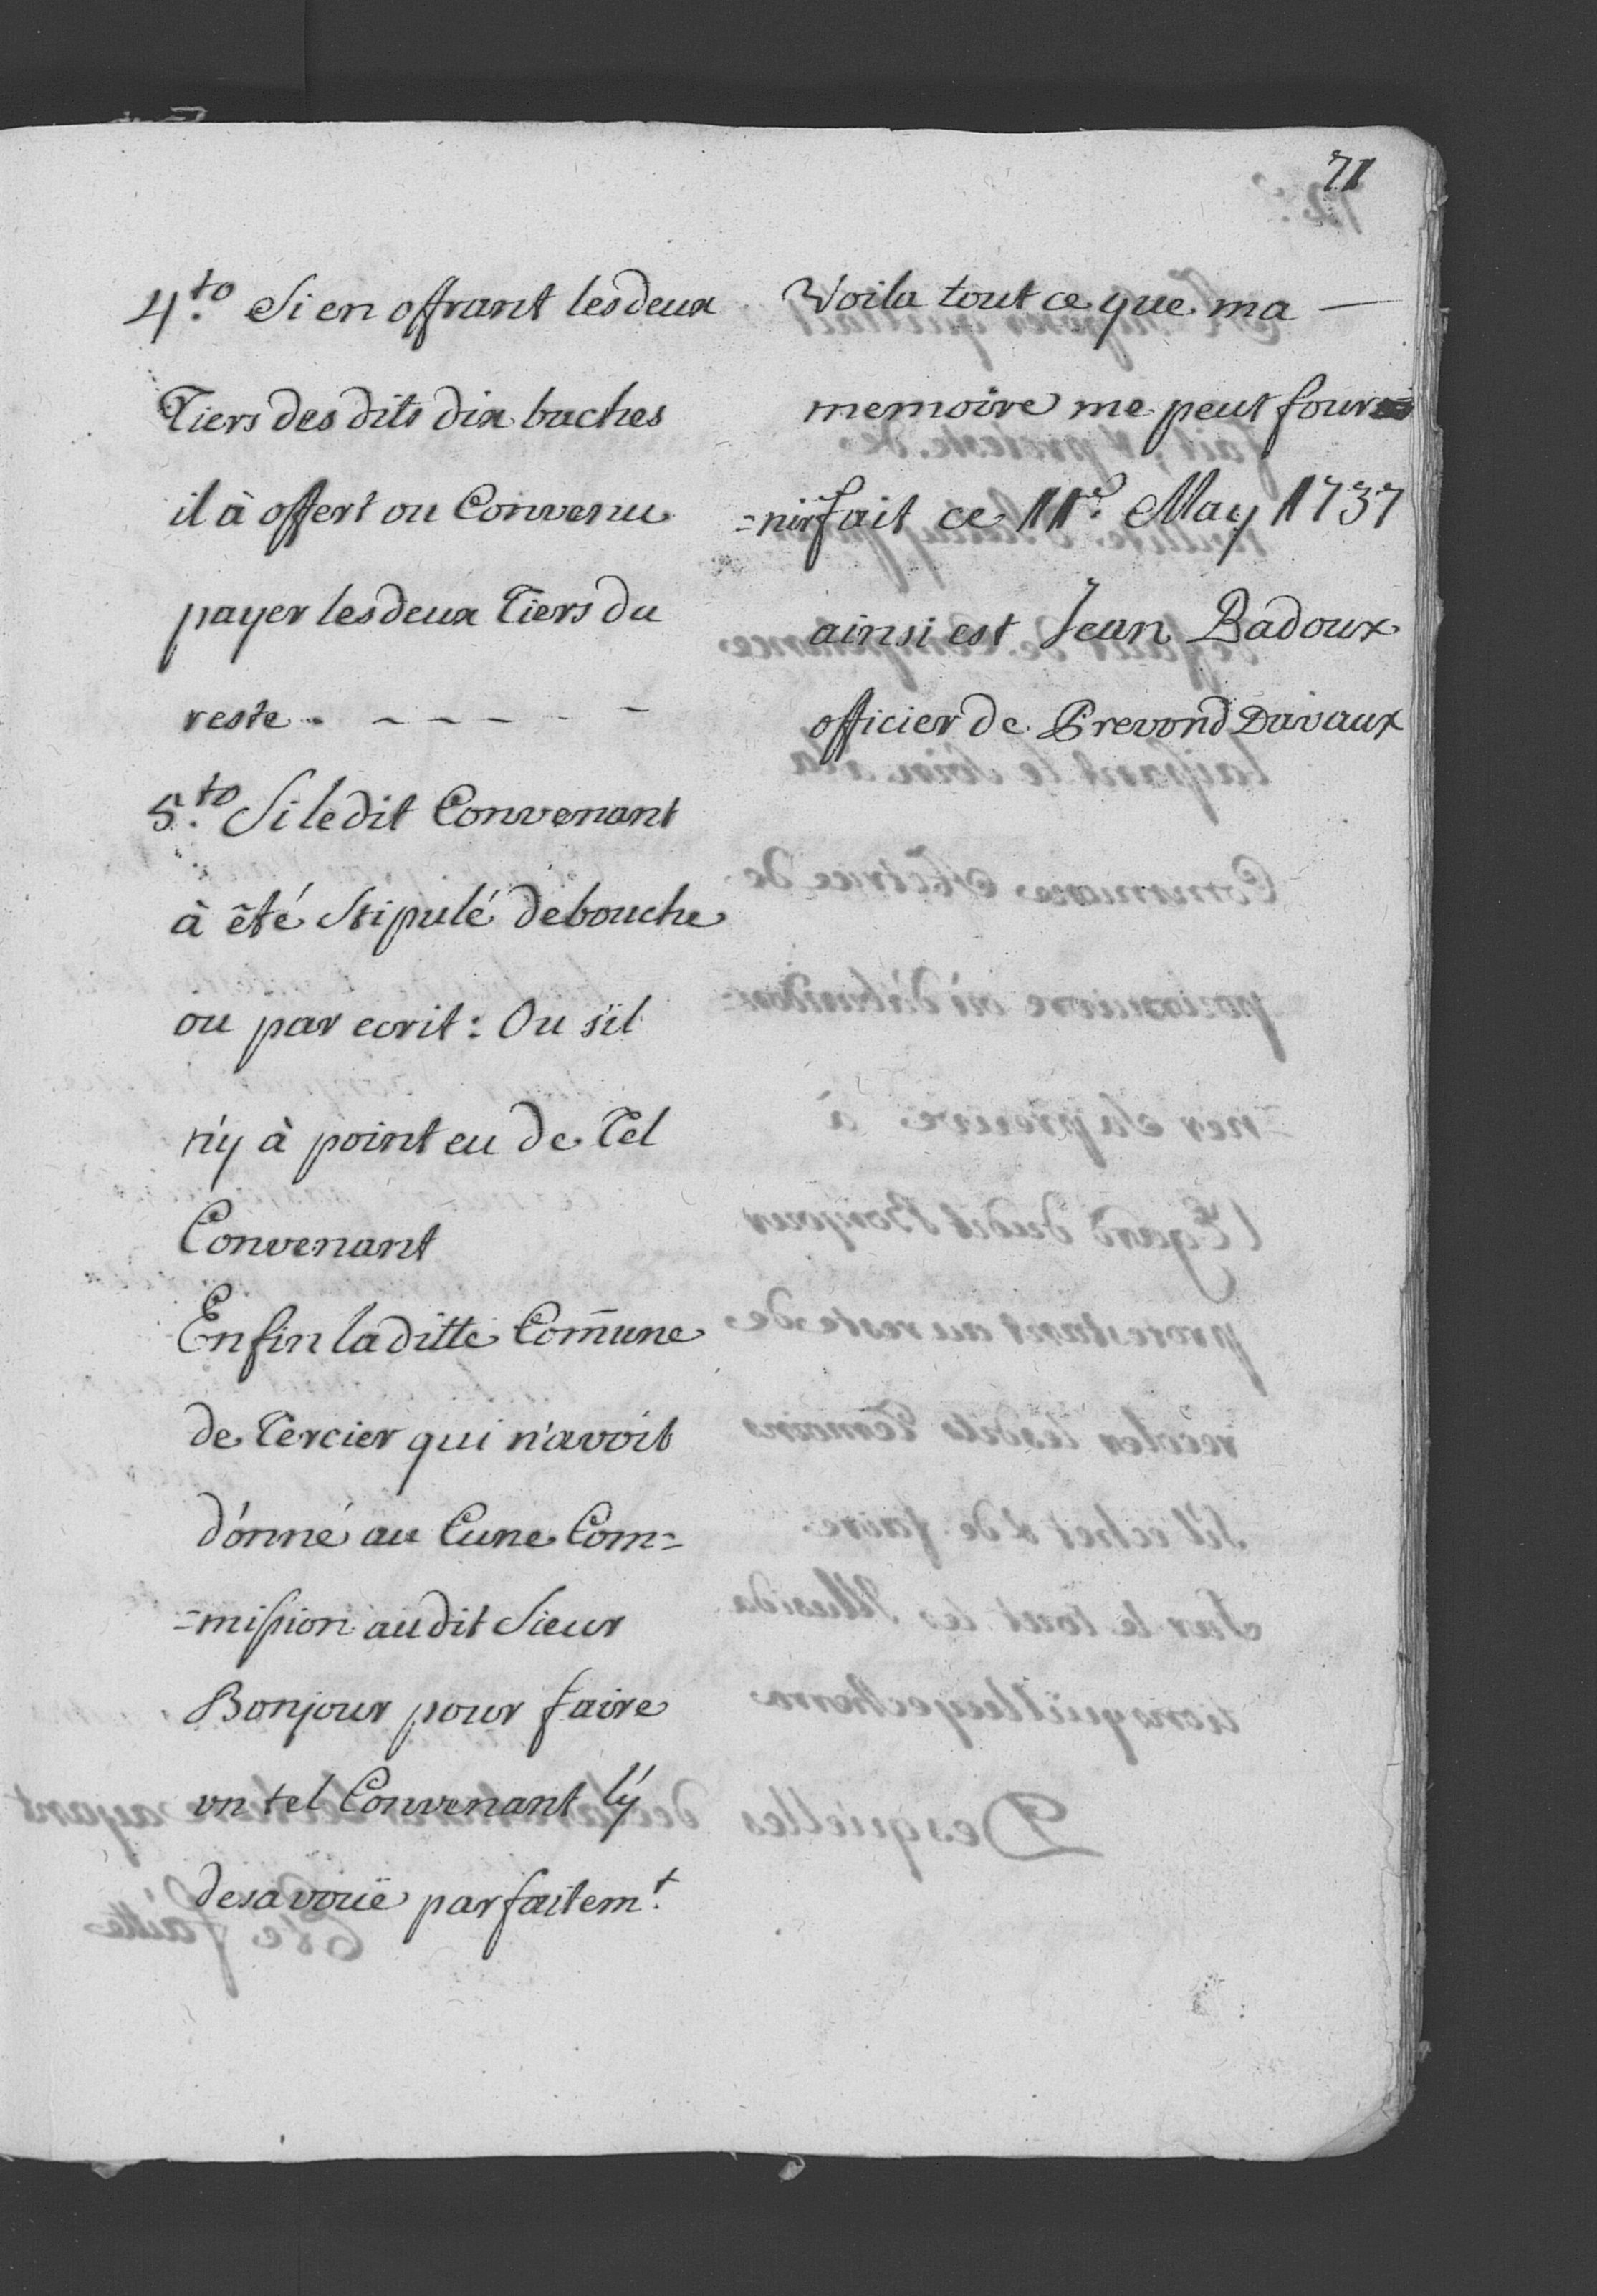 71
4.to Si en offrant les deux
Tiers des dits dix baches
il à offert ou Convenu
payer les deux Tiers du
reste. - - - - - -
5.to Si le dit Convenant
à êté Stipulé de bouche
ou par ecrit : Ou s'il
n'y à point eu de Tel
Convenant
Enfin la ditte Com̄une
de Tercier qui n'avoit
d'onné au Cune Com=
=mission au dit Sieur
Bonjour pour faire
vn tel Convenant l'y
desavouë parfaitem.t
Voila tout ce que ma —
memoire me peut four
=nir fait ce 11.e May 1737
ainsi est Jean Badoux
officier de Prevond Davaux